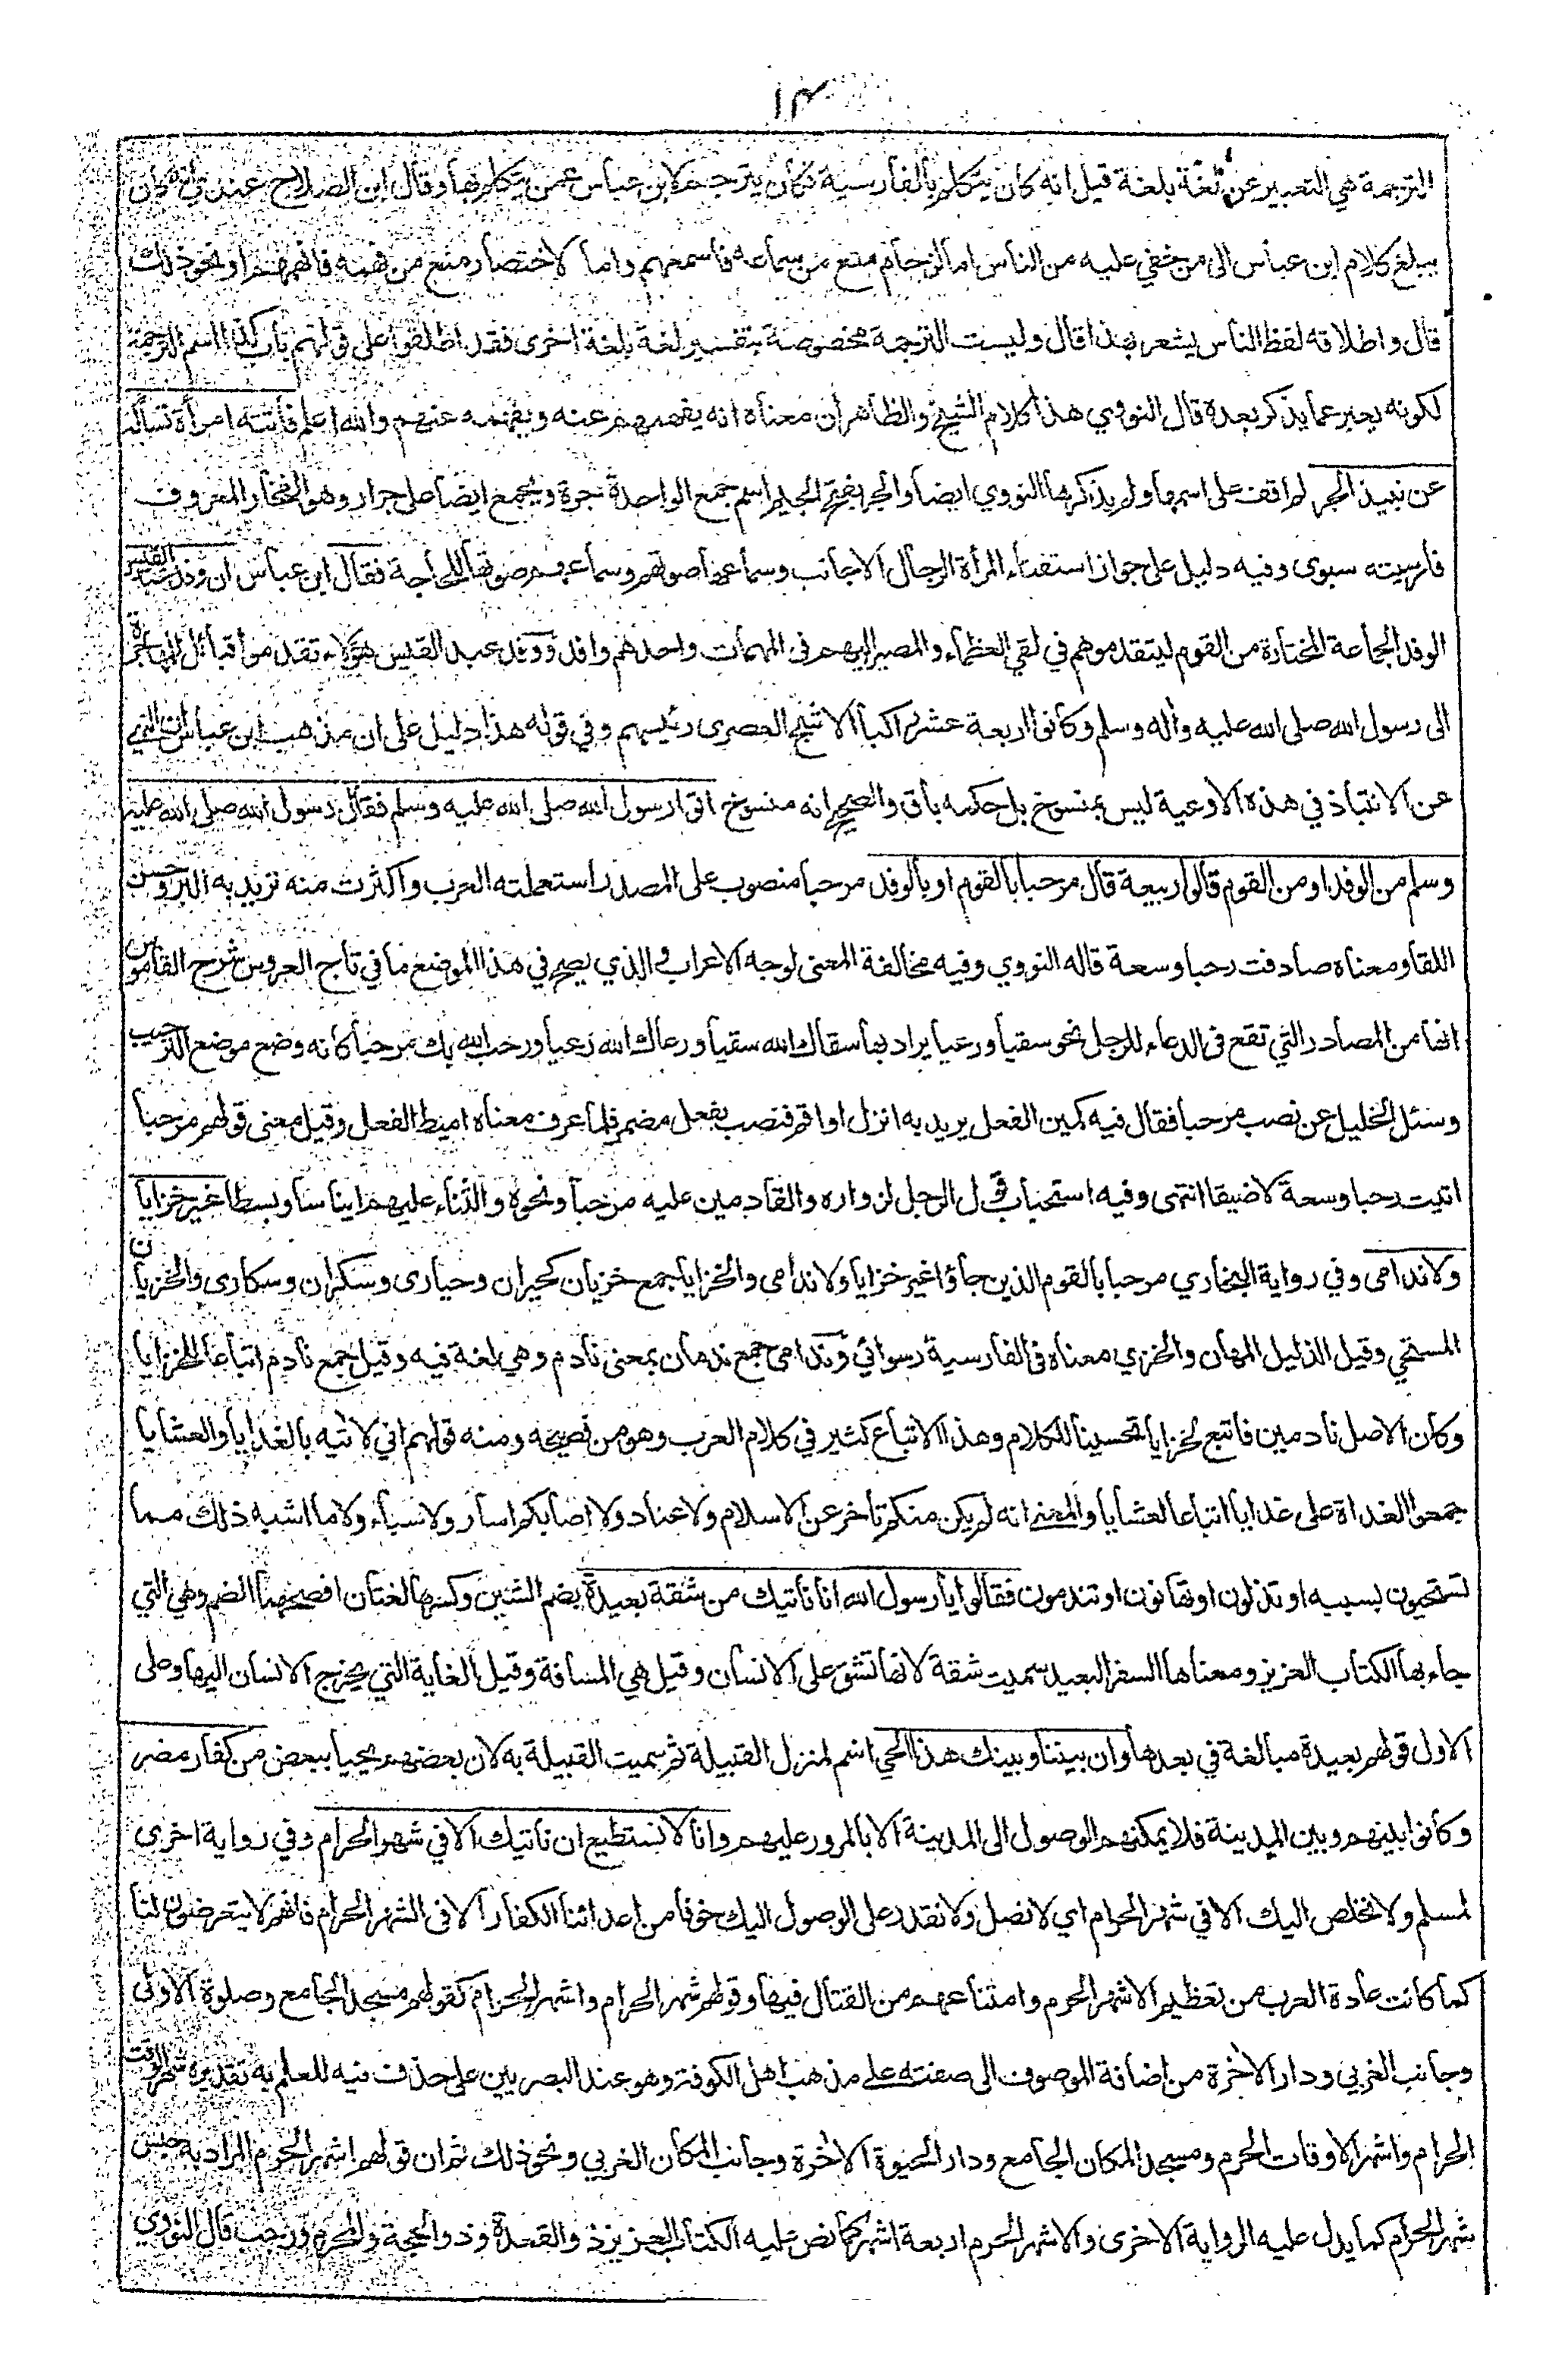 ١٣
الترجمة هي التعبير عن لغة بلغة قيل انه كان يتكلم بالفارسية فكان يترجم لابن عباس عمن يتكلم بها وقال ابن الصلاح عندي انه كان
يبلغ كلام ابن عباس الى من خفي عليه من الناس اما لزحام منع من سماعه فاسمعهم واما لاختصار منع من فهمه فافهمهم او نحو ذلك
قال واطلاقه لفظ الناس يشعر بهذا قال وليست الترجمة مخصوصة بتفسير لغة بلغة اخرى فقد اطلقوا على قولهم باب كذا اسم الترجمة
لكونه يعبر عما يذكر بعده قال النووي هذا كلام الشيخ والظاهر ان معناه انه يفهمهم عنه ويفهمه عنهم والله اعلم فأتته امرأة تسأله
عن نبيذ الجر لم اقف على اسمها ولم يذكرها النووي ايضا والجر بفتح الجيم اسم جمع الواحدة جرة ويجمع ايضا على جرار وهو الفخار المعروف
فارسيته سبوى وفيه دليل على جواز استفتاء المرأة الرجال الاجانب وسماعها صوتهم وسماعهم صوتها للحاجة فقال ابن عباس ان وفد عبد القيس
الوفد الجماعة المختارة من القوم ليتقدموهم في لقي العظماء والمصير اليهم في المهمات واحدهم وافد ووفد عبد القيس هؤلاء تقدموا قبائل للمهاجرة
الى رسول الله صلى الله عليه وأله وسلم وكانوا اربعة عشر راكبا الاشج العصرى رئيسهم وفي قوله هذا دليل على ان مذهب ابن عباس ان النهي
عن الانتباذ في هذه الاوعية ليس بمنسوخ بل حكمه باق والصحيح انه منسوخ اتوا رسول الله صلى الله عليه وسلم فقال رسول الله صلى الله عليه
وسلم من الوفد او من القوم قالوا ربيعة قال مرحبا بالقوم او بالوفد مرحبا منصوب على المصدر استعملته العرب واكثرت منه تريد به البر وحسن
اللقا ومعناه صادفت رحبا وسعة قاله النووي وفيه مخالفة المعنى لوجه الاعراب والذي يصح في هذا الموضع ما في تاج العروس شرح القاموس
انها من المصادر التي تقع في الدعاء للرجل نحو سقيا ورعيا يراد بها سقاك الله سقيا ورعاك الله رعيا ورحب الله بك مرحبا كانه وضع موضع الترحيب
وسئل الخليل عن نصب مرحبا فقال فيه كمين الفعل يريد به انزل او اقم فنصب بفعل مضمر فلما عرف معناه اميط الفعل وقيل معنى قولهم مرحبا
اتيت رحبا وسعة لا ضيقا انتهى وفيه استحباب قول الرجل لزواره والقادمين عليه مرحبا ونحوه والثناء عليهم ايناسا وبسطا غير خزايا
ولا ندامى وفي رواية البخاري مرحبا بالقوم الذين جاؤا غير خزايا ولا ندامى والخزايا جمع خزيان كحيران وحيارى وسكران وسكارى والخزيان
المستحي وقيل الذليل المهان والخزي معناه في الفارسية رسوائي وندامى جمع ندمان بمعنى نادم وهي لغة فيه وقيل جمع نادم اتباعا للخزايا
وكان الاصل نادمين فاتبع لخزايا تحسينا للكلام وهذا الاتباع كثير في كلام العرب وهو من فصيحه ومنه قولهم اني لاتيه بالغدايا والعشايا
جمعوا الغداة على غدايا اتباعا لعشايا والمعنى انه لم يكن منكم تأخر عن الاسلام ولا عناد ولا اصابكم اسار ولا سباء ولا ما اشبه ذلك مما
تستحيون بسببه او تذلون او تهانون او تندمون فقالوا يا رسول الله انا نأتيك من شقة بعيدة بضم الشين وكسرها لغتان افصحهما الضم وهي التي
جاء بها الكتاب العزيز ومعناها السفر البعيد سميت شقة لانها تشق على الانسان وقيل هي المسافة وقيل الغاية التي يخرج الانسان اليها وعلى
الاول قولهم بعيدة مبالغة في بعدها وان بيننا وبينك هذا الحي اسم لمنزل القبيلة ثم سميت القبيلة به لان بعضهم يحيا ببعض من كفار مضر
وكانوا بينهم وبين المدينة فلا يمكنهم الوصول الى المدينة الا بالمرور عليهم وانا لا نستطيع ان نأتيك الا في شهر الحرام وفي رواية اخرى
لمسلم ولا نخلص اليك الا في شهر الحرام اي لا نصل ولا نقدر على الوصول اليك خوفا من اعدائنا الكفار الا في الشهر الحرام فانهم لا يتعرضون لنا
كما كانت عادة العرب من تعظيم الاشهر الحرم وامتناعهم من القتال فيها وقولهم شهر الحرام واشهر الحرام كقولهم مسجد الجامع وصلوة الاولى
وجانب الغربي ودار الاخرة من اضافة الموصوف الى صفته على مذهب اهل الكوفة وهو عند البصريين على حذف فيه للعلم به تقديره شهر الوقت
الحرام واشهر الاوقات الحرم ومسجد المكان الجامع ودار الحيوة الاخرة وجانب المكان الغربي ونحو ذلك ثم ان قولهم اشهر الحرم المراد به جنس
شهر الحرام كما يدل عليه الرواية الاخرى والاشهر الحرم اربعة اشهر كما نص عليه الكتاب العزيز ذو القعدة وذو الحجة والمحرم ورجب قال النووي